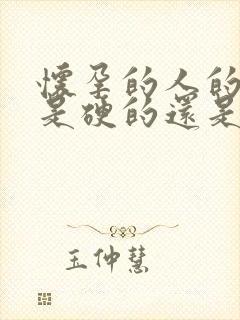 懷孕的人的
是硬的還是
王仲慧